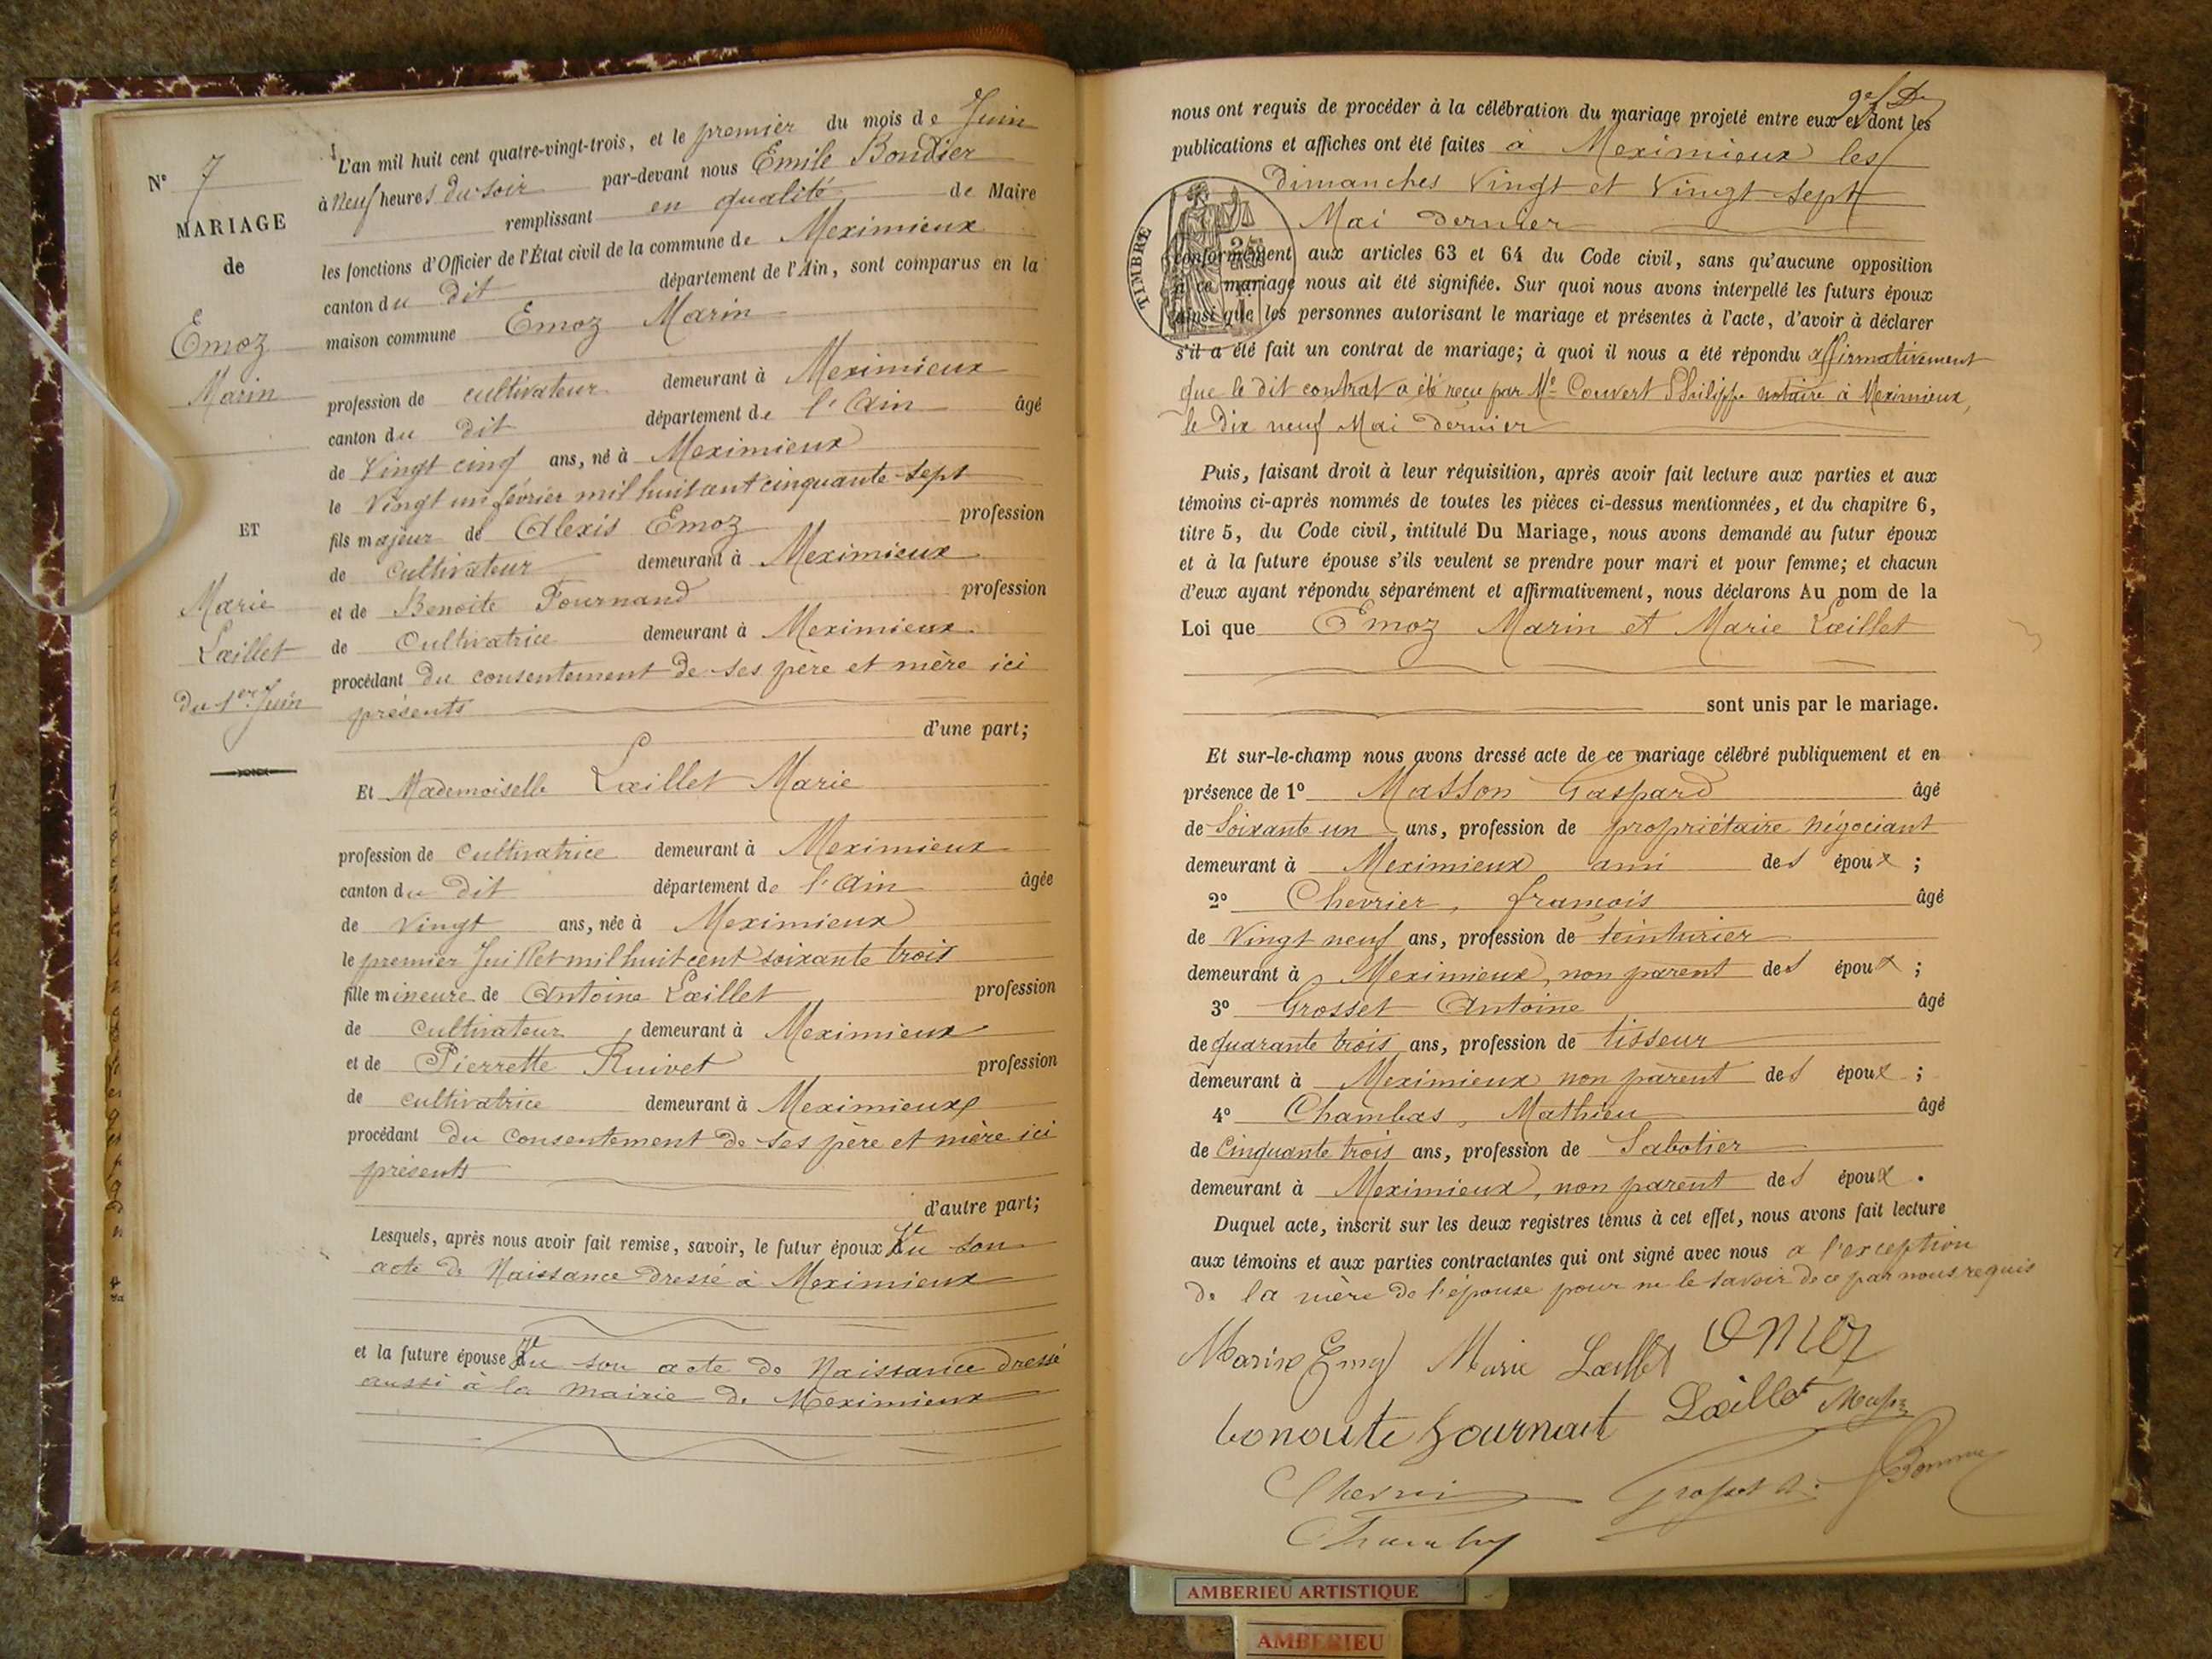 N° 7
MARIAGE
de
Emoz
Marin
ET
Marie
Lœillet
du 1er Juin
L'an mil huit cent quatre-vingt-trois, et le premier du mois de Juin
à neuf heures du soir par-devant nous Emile Bondier
remplissant en qualité de Maire
les fonctions d'Officier de l'État civil de la commune de Meximieux
canton du dit département de l'Ain, sont comparus en la
maison commune Emoz Marin
profession de cultivateur demeurant à Meximieux
canton du dit département de l'Ain âgé
de Vingt cinq ans, né à Meximieux
le Vingt un février mil huit cent cinquante-sept
fils majeur de Alexis Emoz profession
de cultivateur demeurant à Meximieux
et de Benoite Fournand profession
de Cultivatrice demeurant à Meximieux
procédant du consentement de ses père et mère ici
présents
d'une part;
Et Mademoiselle Lœillet Marie
profession de cultivatrice demeurant à Meximieux
canton du dit département de l'Ain âgée
de vingt ans, née à Meximieux
le premier Juillet mil huit cent soixante trois
fille mineure de Antoine Lœillet profession
de cultivateur demeurant à Meximieux
et de Pierrette Ruivet profession
de cultivatrice demeurant à Meximieux
procédant du consentement de ses père et mère ici
présents
d'autre part;
Lesquels, après nous avoir fait remise, savoir, le futur époux Vu son
acte de Naissance dressé à Meximieux
et la future épouse Vu son acte de Naissance dressé
aussi à la mairie de Meximieux
nous ont requis de procéder à la célébration du mariage projeté entre eux et dont les
publications et affiches ont été faites à Meximieux les
Dimanches Vingt et Vingt sept
Mai dernier
TIMBRE
conformément aux articles 63 et 64 du Code civil, sans qu'aucune opposition
à ce mariage nous ait été signifiée. Sur quoi nous avons interpellé les futurs époux
ainsi que les personnes autorisant le mariage et présentes à l'acte, d'avoir à déclarer
s'il a été fait un contrat de mariage; à quoi il nous a été répondu affirmativement
que le dit contrat a été reçu par Me Couvert Philippe notaire à Meximieux,
le Dix neuf Mai dernier
Puis, faisant droit à leur réquisition, après avoir fait lecture aux parties et aux
témoins ci-après nommés de toutes les pièces ci-dessus mentionnées, et du chapitre 6,
titre 5, du Code civil, intitulé Du Mariage, nous avons demandé au futur époux
et à la future épouse s'ils veulent se prendre pour mari et pour femme; et chacun
d'eux ayant répondu séparément et affirmativement, nous déclarons Au nom de la
Loi que Emoz Marin et Marie Lœillet
sont unis par le mariage.
Et sur-le-champ nous avons dressé acte de ce mariage célébré publiquement et en
présence de 1° Masson Gaspard âgé
de Soixante un ans, profession de propriétaire négociant
demeurant à Meximieux ami des époux ;
2° Chevrier, françois âgé
de Vingt neuf ans, profession de teinturier
demeurant à Meximieux, non parent des époux ;
3° Grosset Antoine âgé
de quarante trois ans, profession de tisseur
demeurant à Meximieux non parent des époux ;
4° Chambas, Mathieu âgé
de Cinquante trois ans, profession de Sabotier
demeurant à Meximieux, non parent des époux .
Duquel acte, inscrit sur les deux registres tenus à cet effet, nous avons fait lecture
aux témoins et aux parties contractantes qui ont signé avec nous a l'exception
de la mère de l'épouse pour ne le savoir de ce par nous requis
Marin Emoz Marie Lœillet Emoz
bonoute fournant Lœillet
AMBERIEU ARTISTIQUE
AMBERIEU